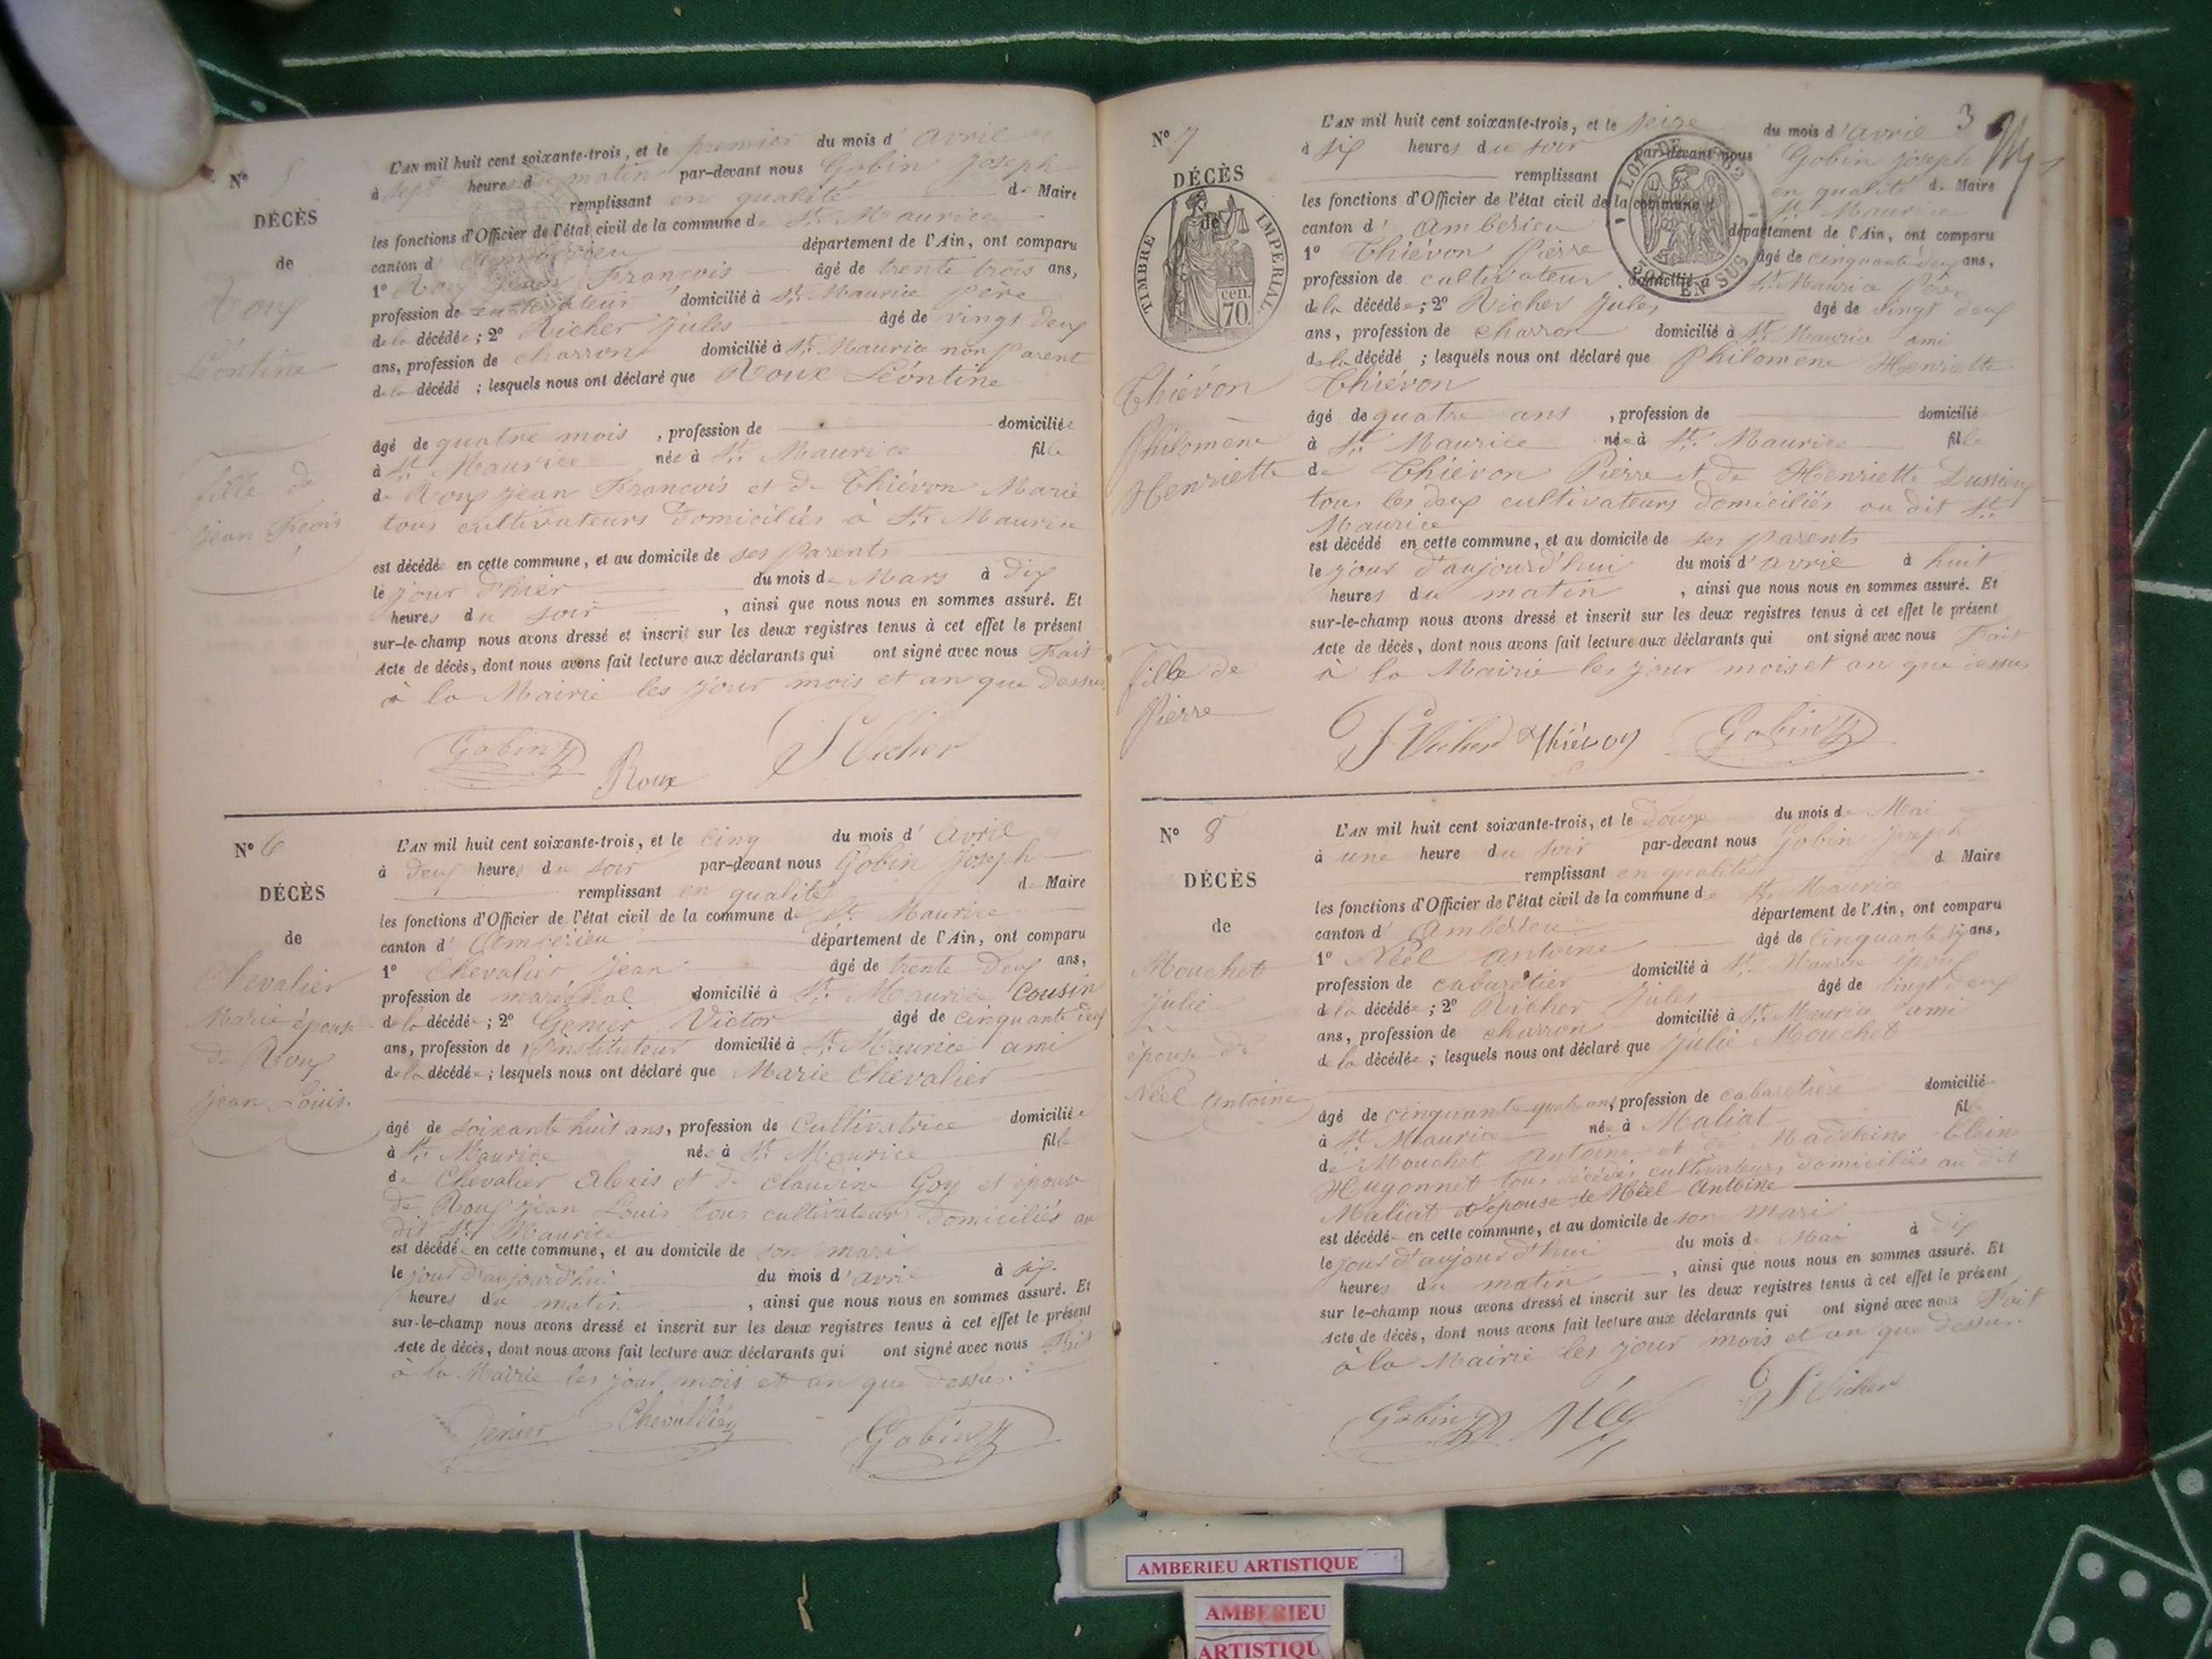 N° 5
DÉCÈS
de
Roux
Léontine
fille de
Jean Fcois
L'AN mil huit cent soixante-trois, et le premier du mois d'avril
à sept heures du matin par-devant nous Gobin Joseph
remplissant en qualité de Maire
les fonctions d'Officier de l'état civil de la commune de St. Maurice
canton d'Ambérieu département de l'Ain, ont comparu
1° Roux Jean François âgé de trente trois ans,
profession de cultivateur domicilié à St. Maurice père
de la décédée; 2° Richer Jules âgé de vingt deux
ans, profession de charron domicilié à St. Maurice non parent
de la décédé ; lesquels nous ont déclaré que Roux Léontine
âgé de quatre mois , profession de domiciliée
à St. Maurice née à St. Maurice fille
de Roux Jean François et de Thiévon Marie
tous cultivateurs domiciliés à St. Maurice
est décédée en cette commune, et au domicile de ses parents
le jour d'hier du mois de Mars à dix
heures du soir , ainsi que nous nous en sommes assuré. Et
sur-le-champ nous avons dressé et inscrit sur les deux registres tenus à cet effet le présent
Acte de décès, dont nous avons fait lecture aux déclarants qui ont signé avec nous Fait
à la Mairie les jour mois et an que dessus
Gobin Roux J Richer
N° 6
DÉCÈS
de
Chevalier
Marie épouse
de Roux
Jean Louis.
L'AN mil huit cent soixante-trois, et le cinq du mois d'avril
à deux heures du soir par-devant nous Gobin Joseph
remplissant en qualité de Maire
les fonctions d'Officier de l'état civil de la commune de St. Maurice
canton d'Ambérieu département de l'Ain, ont comparu
1° Chevalier Jean âgé de trente deux ans,
profession de maréchal domicilié à St. Maurice Cousin
de la décédée; 2° Genier Victor âgé de cinquante deux
ans, profession de Instituteur domicilié à St. Maurice ami
de la décédée; lesquels nous ont déclaré que Marie Chevalier
âgé de soixante huit ans, profession de Cultivatrice domiciliée
à St. Maurice née à St. Maurice fille
de Chevalier Alexis et de Claudine Goy et épouse
de Roux Jean Louis tous cultivateurs domiciliés au
dit St. Maurice
est décédée en cette commune, et au domicile de son mari
le jour d'aujourd'hui du mois d'avril à six
heures du matin , ainsi que nous nous en sommes assuré. Et
sur-le-champ nous avons dressé et inscrit sur les deux registres tenus à cet effet le présent
Acte de décès, dont nous avons fait lecture aux déclarants qui ont signé avec nous Fait
à la Mairie les jour mois et an que dessus.
Genier Chevallier Gobin
3
N° 7
DÉCÈS
de
TIMBRE IMPÉRIAL
cen. 70
LOI DE 1862
2 10es EN SUS
Thiévon
Philomène
Henriette
fille de
Pierre
L'AN mil huit cent soixante-trois, et le seize du mois d'avril
à six heures du soir par-devant nous Gobin Joseph
remplissant en qualité de Maire
les fonctions d'Officier de l'état civil de la commune St. Maurice
canton d'Ambérieu département de l'Ain, ont comparu
1° Thiévon Pierre âgé de cinquante deux ans,
profession de cultivateur domicilié à St. Maurice Père
de la décédée; 2° Richer Jules âgé de vingt deux
ans, profession de charron domicilié à St. Maurice ami
de la décédé ; lesquels nous ont déclaré que Philomene Henriette
Thiévon
âgé de quatre ans , profession de domicilié
à St. Maurice née à St. Maurice fille
de Thiévon Pierre et de Henriette
tous les deux cultivateurs domiciliés au dit St.
Maurice
est décédé en cette commune, et au domicile de ses parents
le jour d'aujourd'hui du mois d'avril à huit
heures du matin , ainsi que nous nous en sommes assuré. Et
sur-le-champ nous avons dressé et inscrit sur les deux registres tenus à cet effet le présent
Acte de décès, dont nous avons fait lecture aux déclarants qui ont signé avec nous Fait
à la Mairie les jour mois et an que dessus
J Richer Thiévon Gobin
N° 8
DÉCÈS
de
Mouchet
Julie
épouse de
Néel Antoine
L'AN mil huit cent soixante-trois, et le douze du mois de Mai
à une heure du soir par-devant nous Gobin Joseph
remplissant en qualité de Maire
les fonctions d'Officier de l'état civil de la commune de St. Maurice
canton d'Ambérieu département de l'Ain, ont comparu
1° Néel Antoine âgé de cinquante six ans,
profession de cabaretier domicilié à St. Maurice époux
de la décédée; 2° Richer Jules âgé de vingt deux
ans, profession de charron domicilié à St. Maurice ami
de la décédée; lesquels nous ont déclaré que Julie Mouchet
âgé de cinquante quatre ans, profession de cabaretière domicilié
à St. Maurice née à Maliat fille
de Mouchet Antoine et de Madeleine
Hugonnet tous décédés cultivateurs domiciliés au dit
Maliat et épouse de Néel Antoine
est décédée en cette commune, et au domicile de son mari
le jour d'aujourd'hui du mois de Mai à dix
heures du matin , ainsi que nous nous en sommes assuré. Et
sur le-champ nous avons dressé et inscrit sur les deux registres tenus à cet effet le présent
Acte de décès, dont nous avons fait lecture aux déclarants qui ont signé avec nous Fait
à la Mairie les jour mois et an que dessus.
Gobin Néel J Richer
AMBERIEU ARTISTIQUE
AMBERIEU
ARTISTIQU